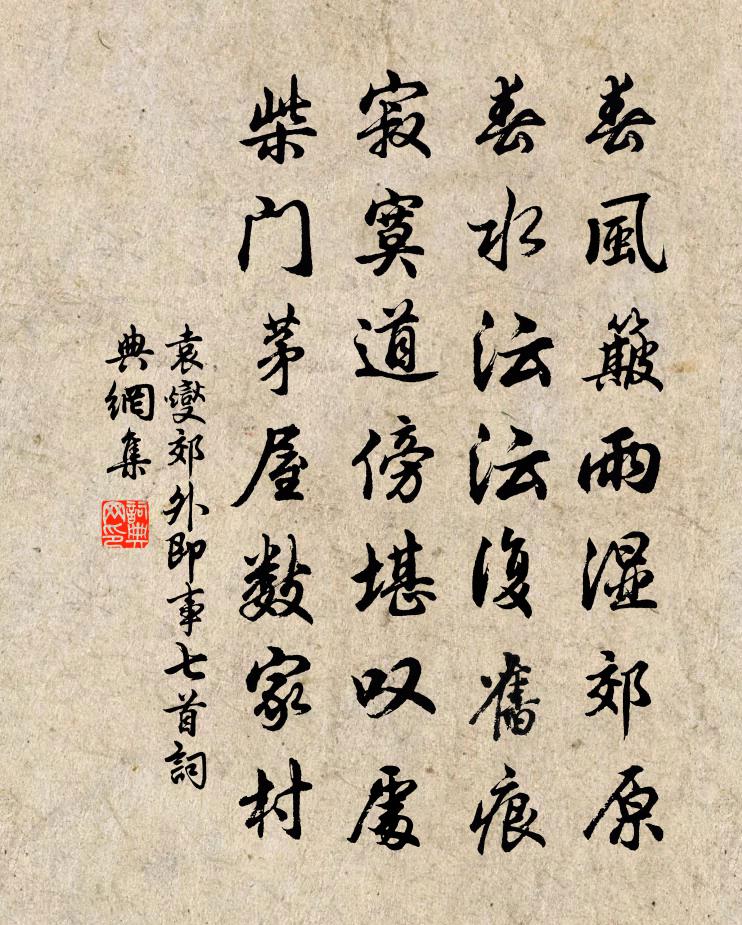 春風簸雨湿郊原
春水沄沄復舊痕
寂寞道傍堪叹處
柴门茅屋数家村
袁燮郊外即事七首詞
典網集
詞典网印